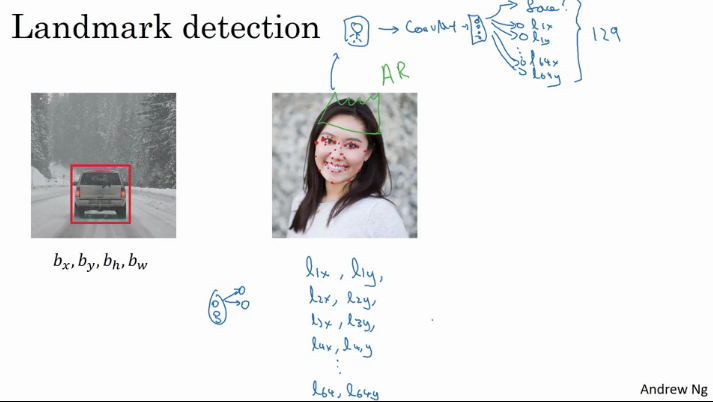 Landmark detection
→ ConvNet →
face?
l1x
l1y
⋮
l64x
l64y
129
AR
bx, by, bh, bw
l1x, l1y,
l2x, l2y,
l3x, l3y,
l4x, l4y
⋮
l64, l64y
Andrew Ng